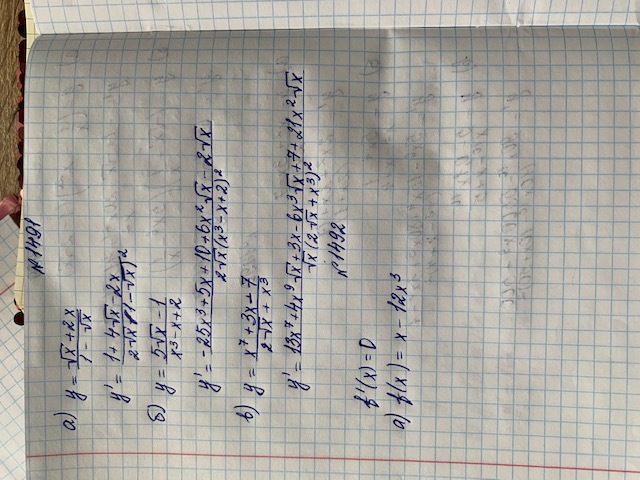 №1491
а) y = (√x + 2x)/(1 - √x)
y' = (1 + 4√x - 2x)/(2√x(1 - √x)²)
б) y = (5√x - 1)/(x³ - x + 2)
y' = (-25x³ + 5x + 10 + 6x²√x - 2√x)/(2√x(x³ - x + 2)²)
в) y = (x⁷ + 3x + 7)/(2√x + x³)
y' = (13x⁷ + 4x⁹√x + 3x - 6x³√x + 7 + 21x²√x)/(√x(2√x + x³)²)
№1492
f'(x) = 0
а) f(x) = x - 12x³